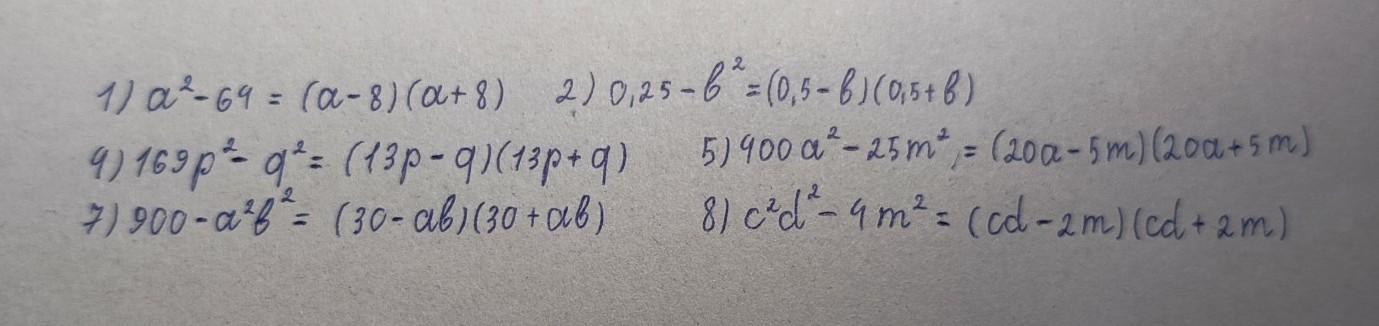 1) a²-64 = (a-8)(a+8) 2) 0,25-b²=(0,5-b)(0,5+b)
4) 169p²-q²= (13p-q)(13p+q) 5) 400a²-25m²,= (20a-5m)(20a+5m)
7) 900-a²b²= (30-ab)(30+ab) 8) c²d²-4m²= (cd-2m)(cd+2m)